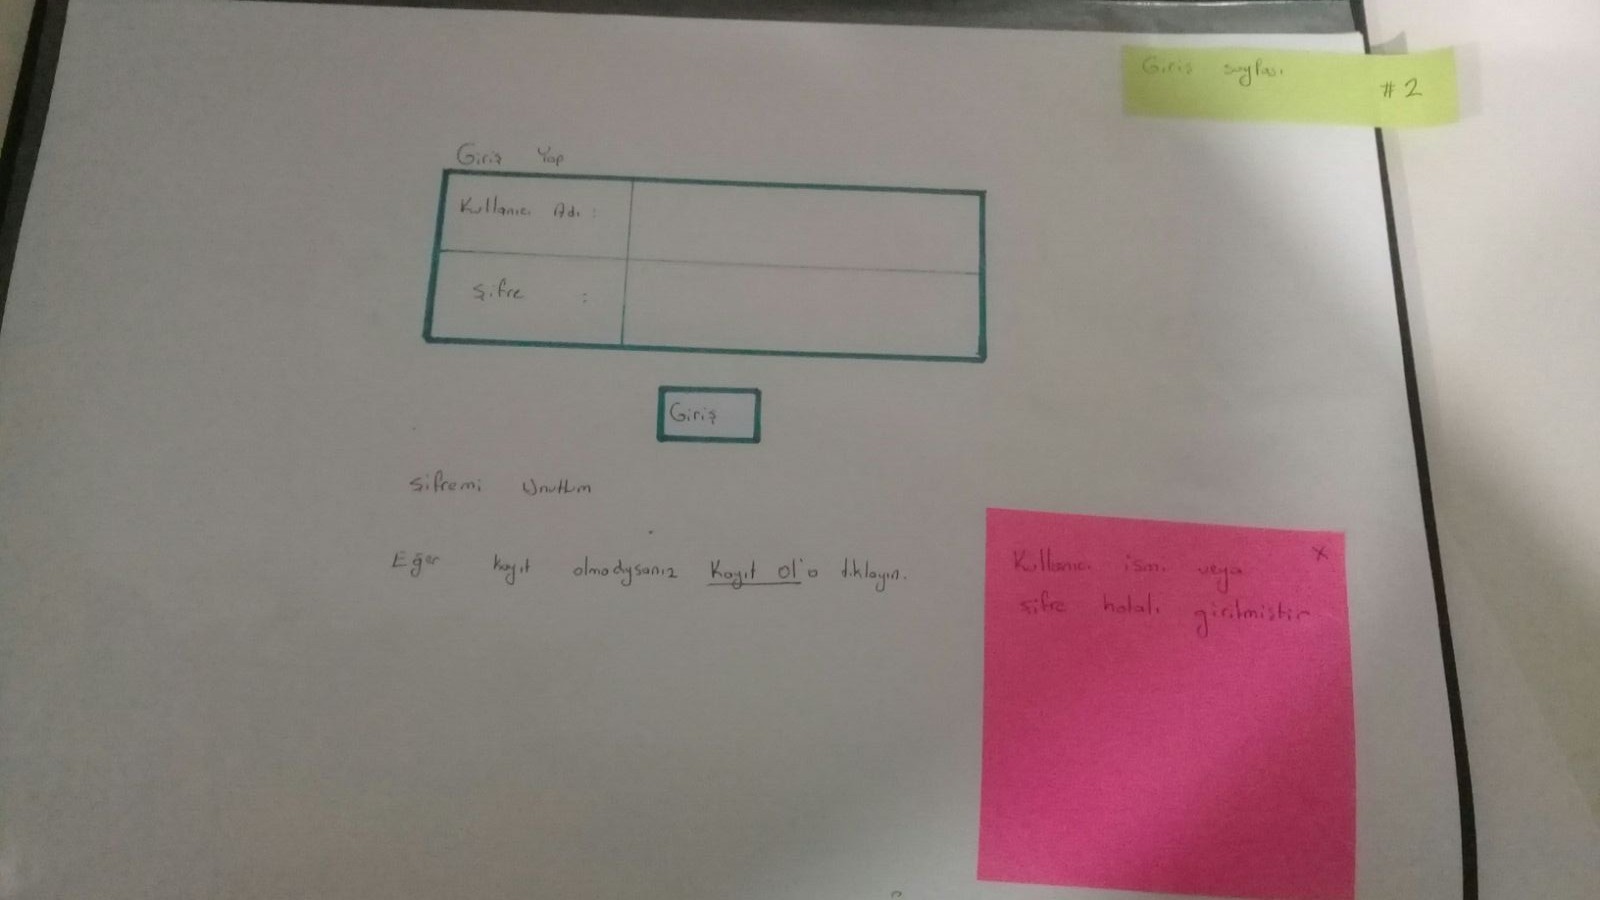 Giriş sayfası
#2
Giriş Yap
Kullanıcı Adı :
Şifre :
Giriş
Şifremi Unuttum
Eğer kayıt olmadysanız Kayıt ol'a tıklayın.
x
Kullanıcı ismi veya
şifre hatalı girilmiştir